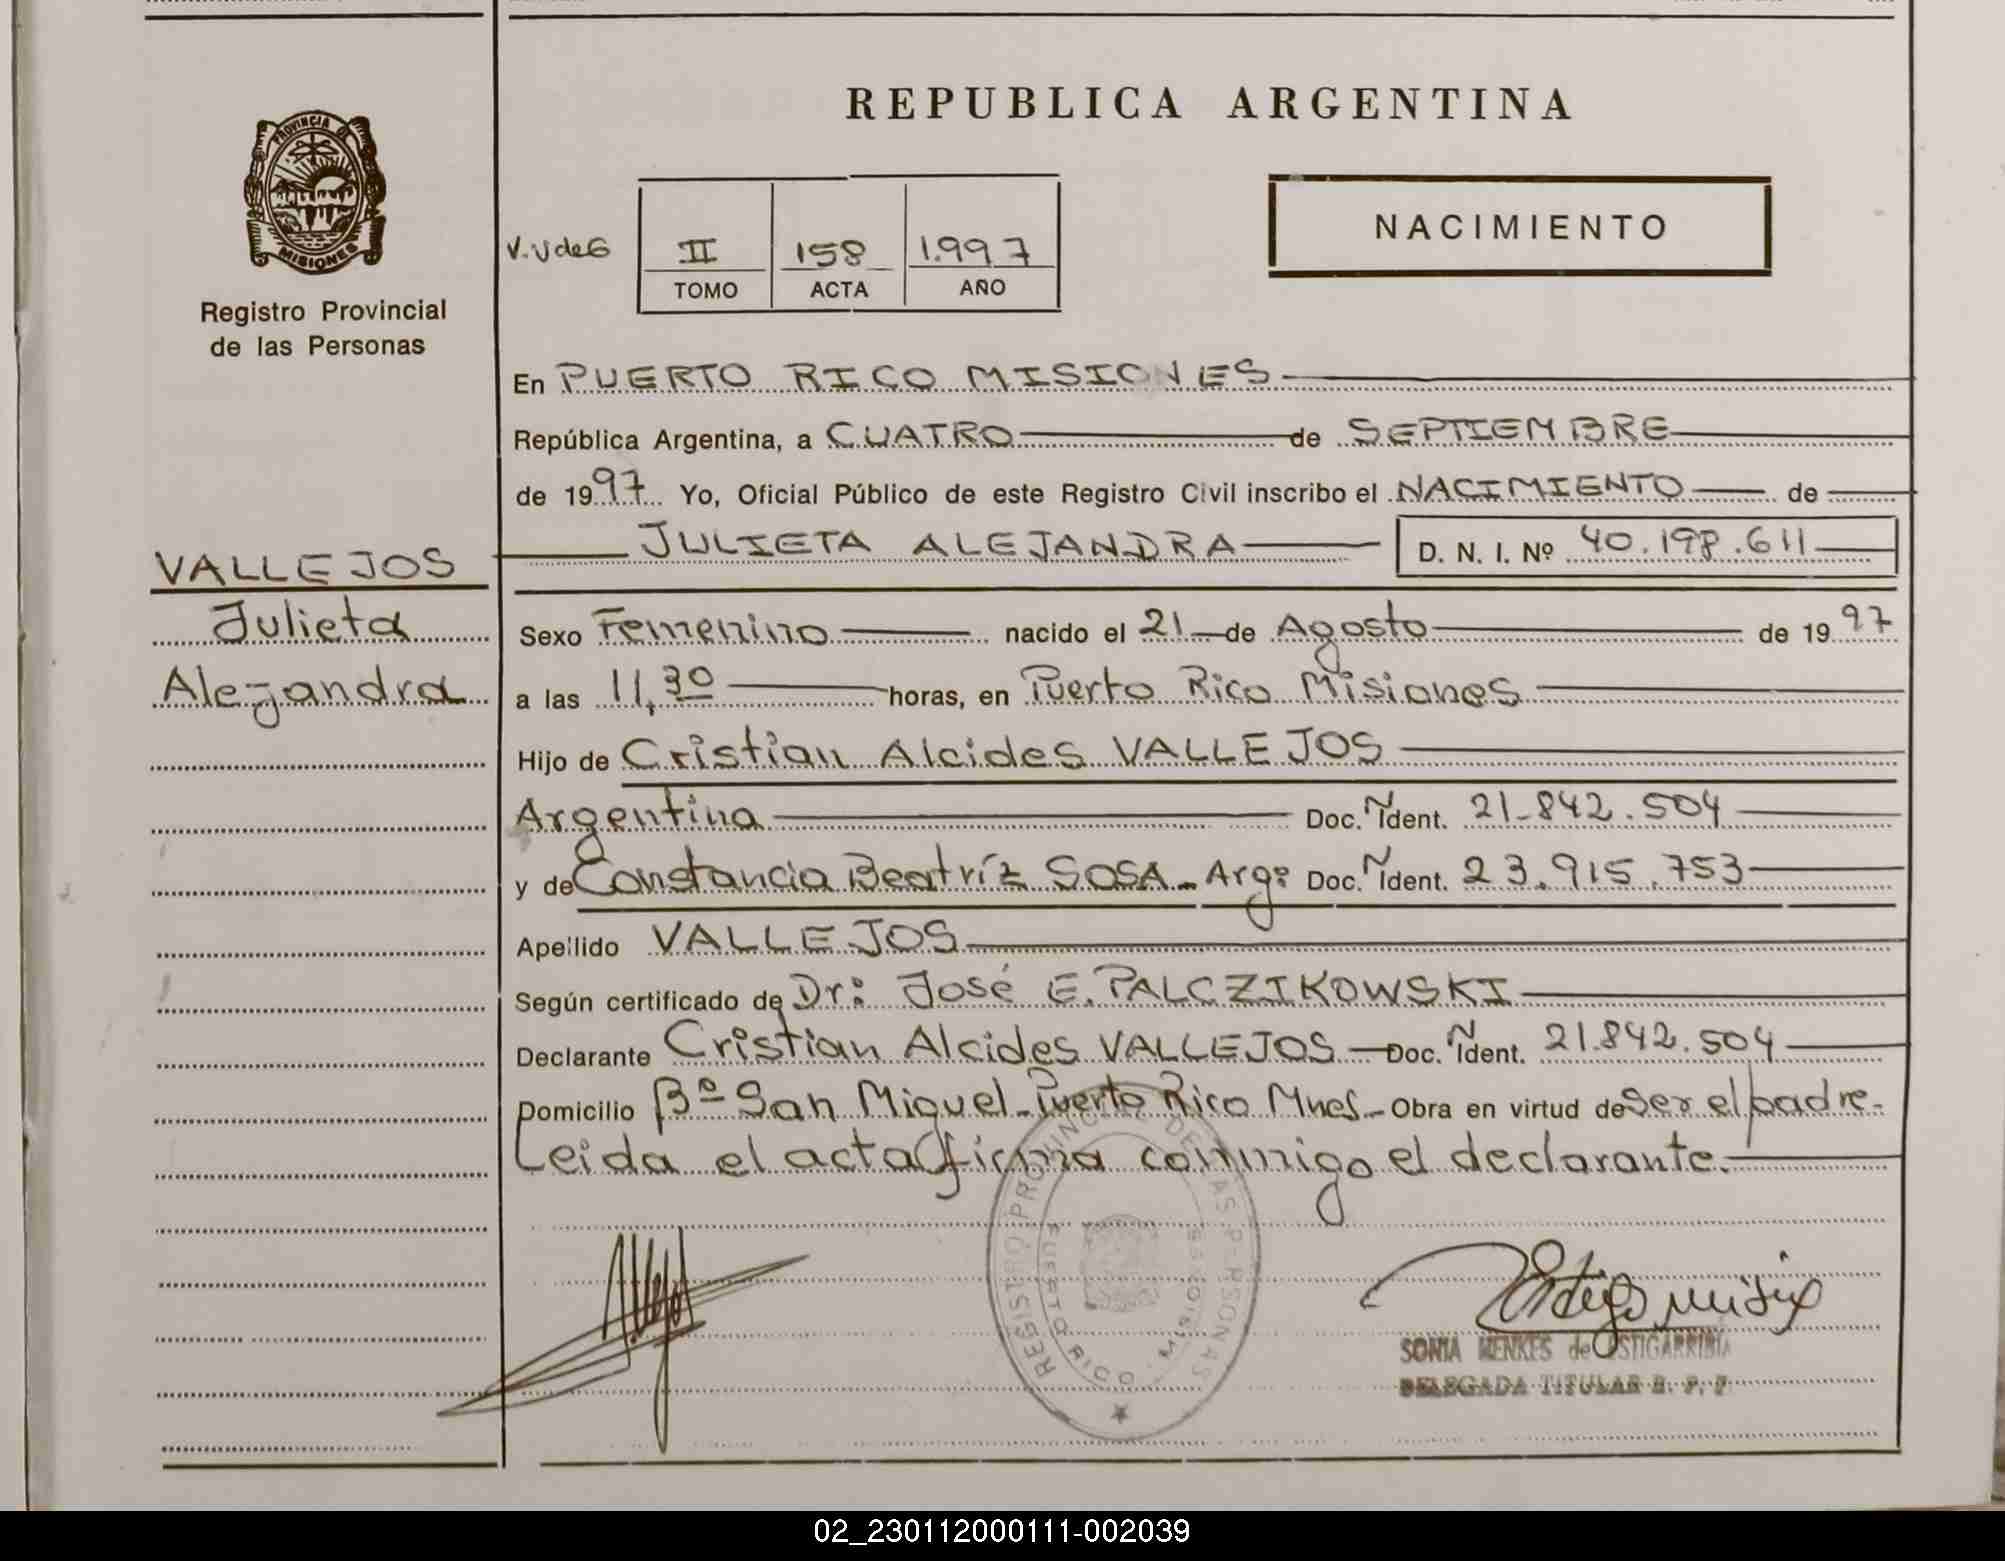 REPUBLICA ARGENTINA
PROVINCIA D
MISIONES
NACIMIENTO
V. V de G
II 158 1.997
TOMO ACTA AÑO
Registro Provincial
de las Personas
En PUERTO RICO MISIONES
República Argentina, a CUATRO de SEPTIEMBRE
de 1997 Yo, Oficial Público de este Registro Civil inscribo el NACIMIENTO de
JULIETA ALEJANDRA D. N. I. Nº 40.198.611
VALLEJOS
Julieta
Alejandra
Sexo Femenino nacido el 21 de Agosto de 1997
a las 11,30 horas, en Puerto Rico Misiones
Hijo de Cristian Alcides VALLEJOS
Argentina Doc. Ident. 21.842.504
y de Constancia Beatríz SOSA - Arg: Doc. Ident. 23.915.753
Apellido VALLEJOS
Según certificado de Dr: José E. PALCZIKOWSKI
Declarante Cristian Alcides VALLEJOS Doc. Ident. 21.842.504
Domicilio Bº San Miguel - Puerto Rico Mnes - Obra en virtud de ser el padre.-
Leida el acta firma conmigo el declarante.
REGISTRO PROVINCIAL DE LAS PERSONAS
PUERTO RICO - MISIONES
SONIA MENKES de ESTIGARRIBIA
DELEGADA TITULAR R. P. P
02_230112000111-002039